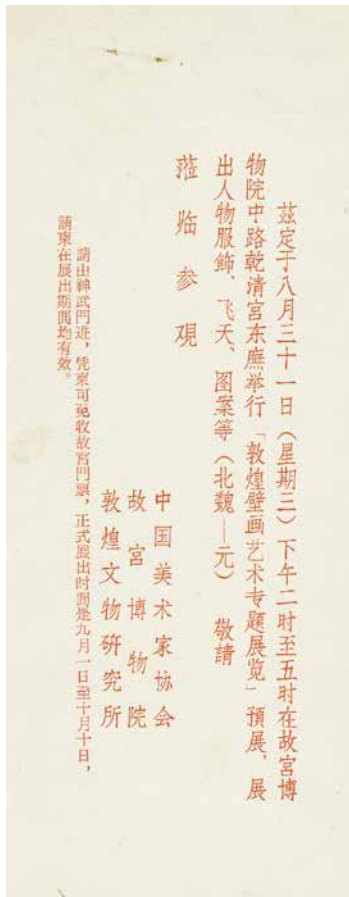 茲定于八月三十一日（星期三）下午二时至五时在故宮博
物院中路乾清宮东廡举行「敦煌壁画艺术专题展览」預展，展
出人物服飾、飞天、图案等（北魏—元）　敬請
蒞临参观
中国美术家协会
故宮博物院
敦煌文物研究所
請由神武門進，凭柬可免收故宮門票，正式展出时間是九月一日至十月十日，
請柬在展出期間均有效。